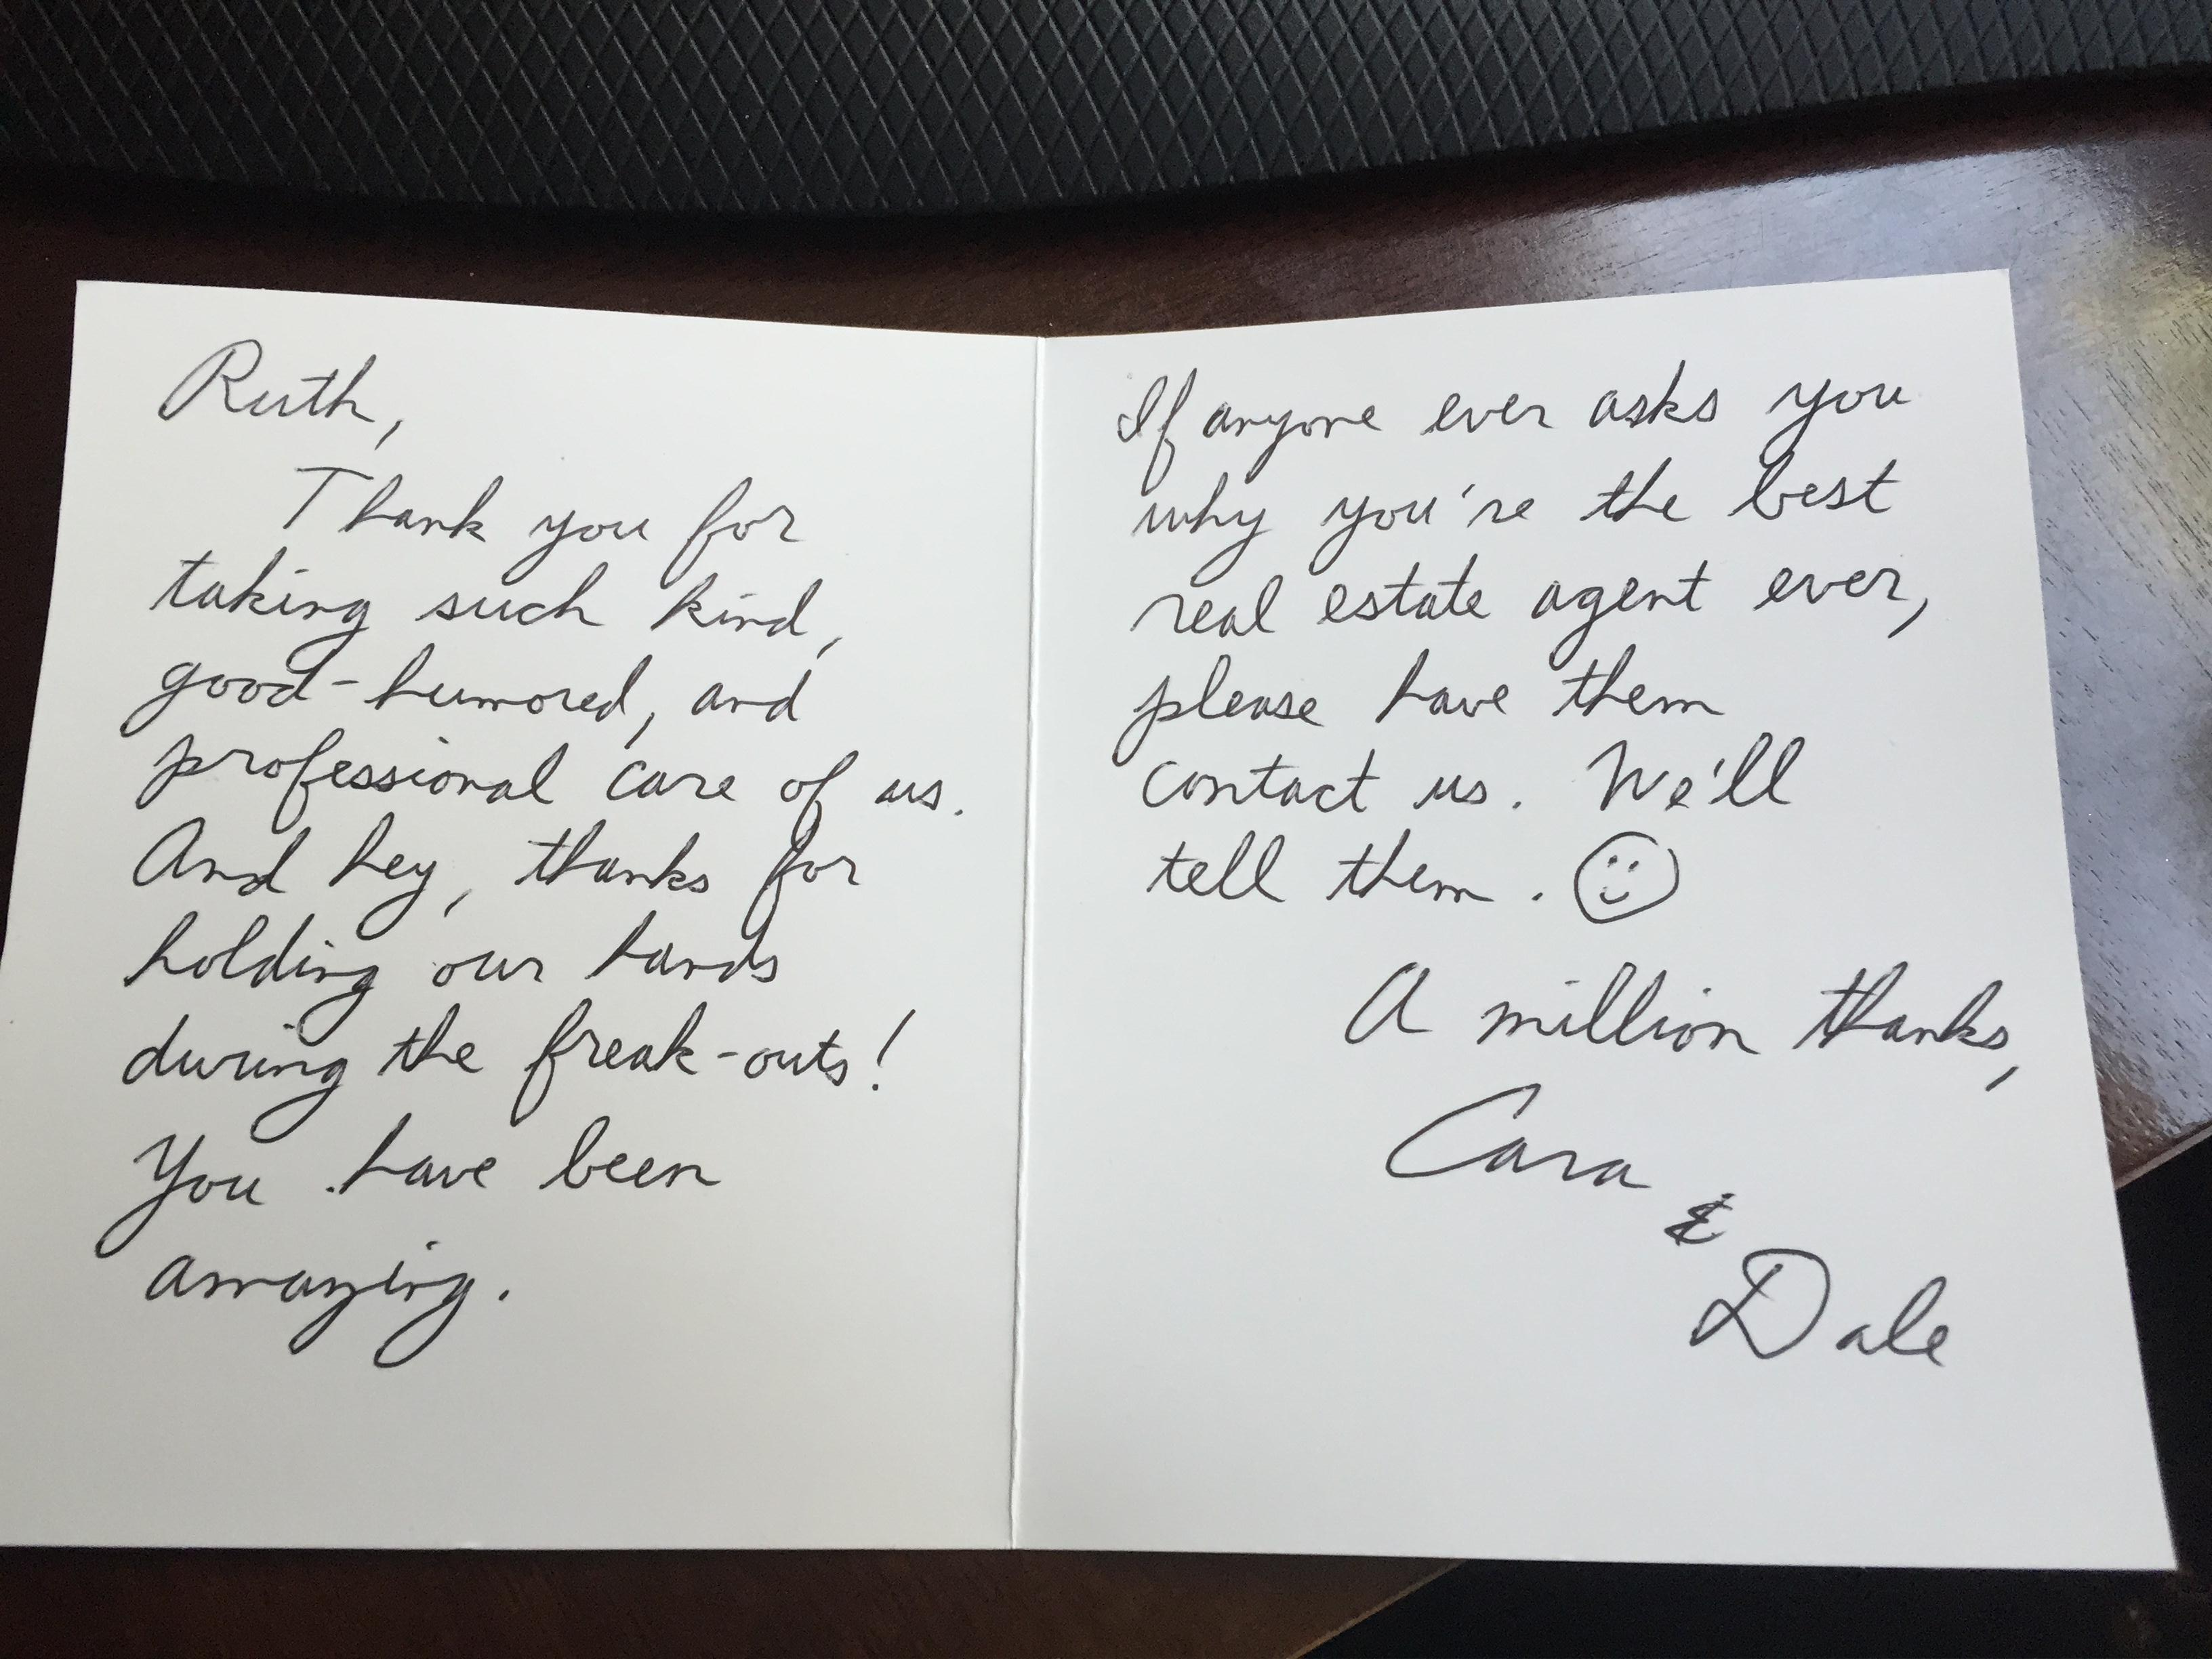 Ruth,
Thank you for
taking such kind,
good-humored, and
professional care of us.
And hey, thanks for
holding our hands
during the freak-outs!
You have been
amazing.
If anyone ever asks you
why you're the best
real estate agent ever,
please have them
contact us. We'll
tell them. ☺
A million thanks,
Cara
&
Dale